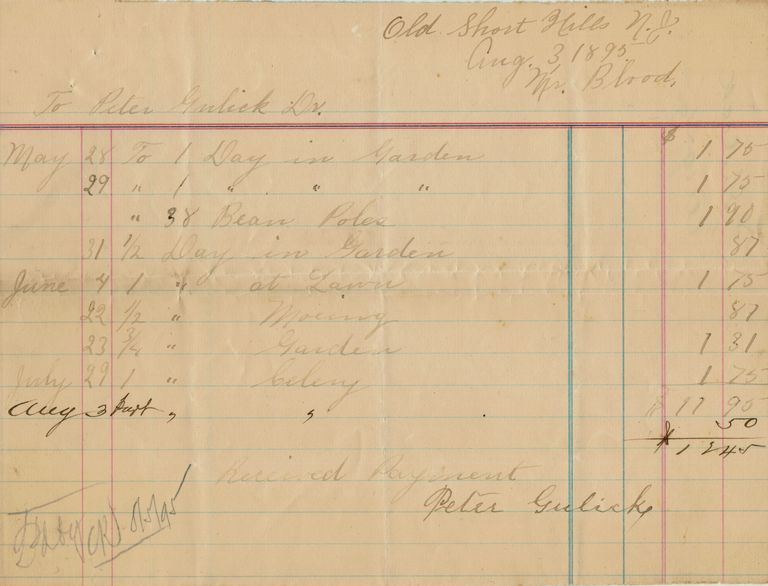 Old Short Hills N.J.
Aug. 3, 1895
Mr. Blood,
To Peter Gulick Dr.
May 28 To 1 Day in Garden $ 1 75
29 " 1 " " " 1 75
" 38 Bean Poles 1 90
31 1/2 Day in Garden 87
June 4 1 " at Lawn 1 75
22 1/2 " Moeing 87
23 3/4 " Garden 1 31
July 29 1 " Celery 1 75
$ 11 95
Aug 3 Part " " 50
$ 12 45
Received Payment
Peter Gulick
8/5/95